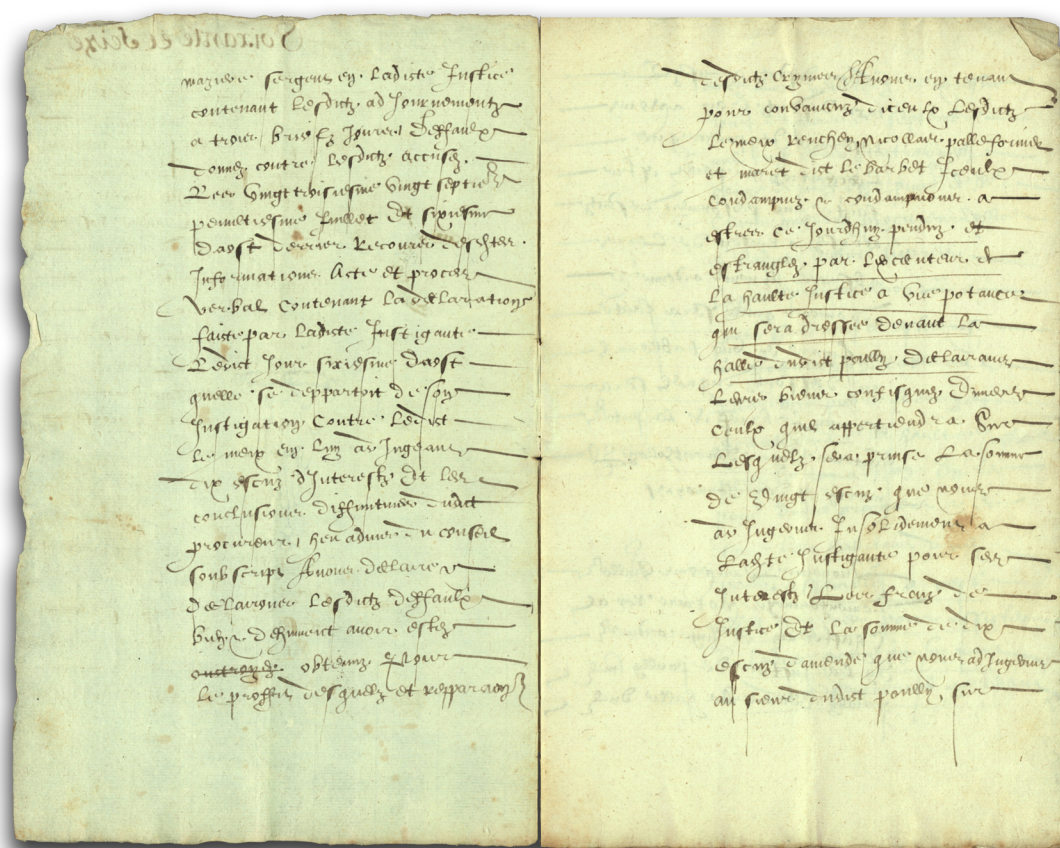 maziere sergent en ladicte Justice
contenant lesdictz adJournementz
a trois briefz Jours deffaulx
donnez contre lesdictz accusez
Lees vingttroisiesme vingt septie
penultiesme Juillet Et sixiesme
daost dernier Recours desdictes
Informations Acte et proces
verbal Contenant la declaration
faicte par Ladicte Instigante
Ledict Jour sixiesme daost
quelle se deppartoit de son
Instigation Contre Ledict
le meix en luy adJugeant
dix escuz dInterestz Et les
conclusions diffinitives dudict
procureur heu advis du conseil
soubscript Avons declaire
Declairons lesdictz deffaulx
bien & dehument avoir estez
obtenuz Pour
le proffit desquelz et repparaon
desdictz Crymes Avons en tenant
pour convaincuz diceulx Lesdictz
Lemeix Nicollas
et maret dict le barbet Iceulx
Condampnez & condampnons a
estres ce Jourdhuy penduz et
estranglez par Lexecuteur de
la haulte Justice a une potance
qui sera dressee devant la
halle dudict pouilly Declairans
Leurs biens confisquez Envers
Ceulx quil appertiendra Sur
Lesquelz sera prinse La somme
de Vingt escuz que nous
avons adJugez Insolidement a
Ladicte Instigante pour ses
Interestz Les fraiz de
Justice Et la somme de dix
escuz damende que nous adJugeons
au sieur dudict pouilly, sur